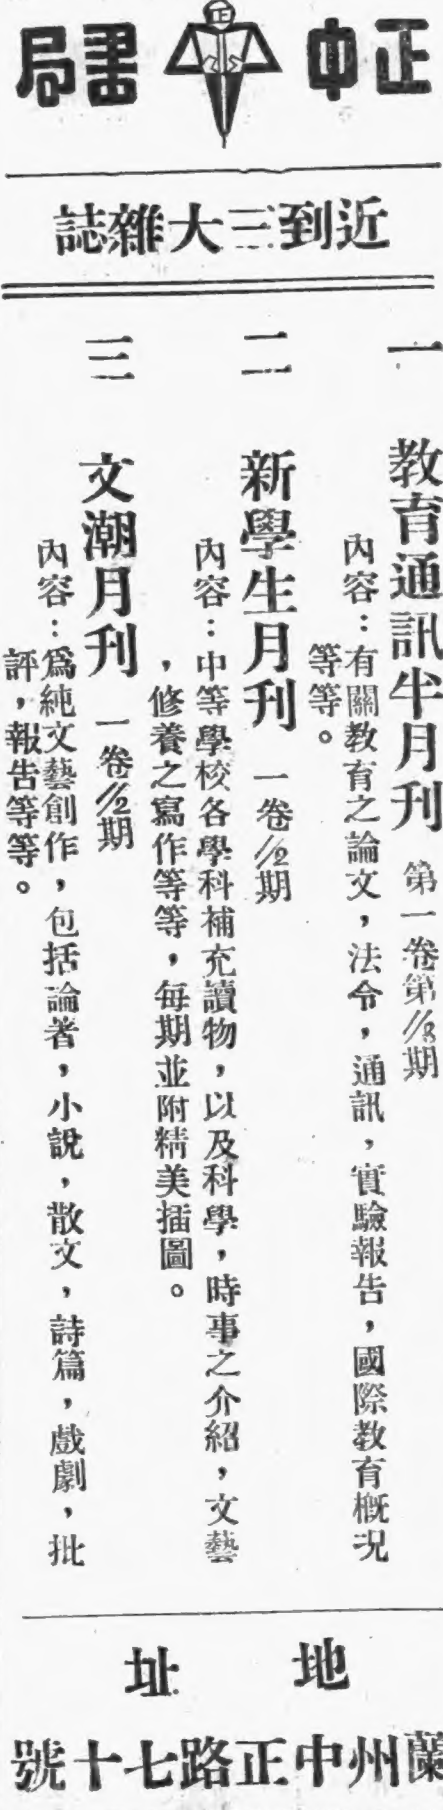 正中書局
正
近到三大雜誌
一
教育通訊半月刊 第一卷第1/8期
內容：有關教育之論文，法令，通訊，實驗報告，國際教育概況
等等。
二
新學生月刊 一卷1/2期
內容：中等學校各學科補充讀物，以及科學，時事之介紹，文藝
，修養之寫作等等，每期並附精美插圖。
三
文潮月刊 一卷1/2期
內容：爲純文藝創作，包括論著，小說，散文，詩篇，戲劇，批
評，報告等等。
地址
蘭州中正路七十號